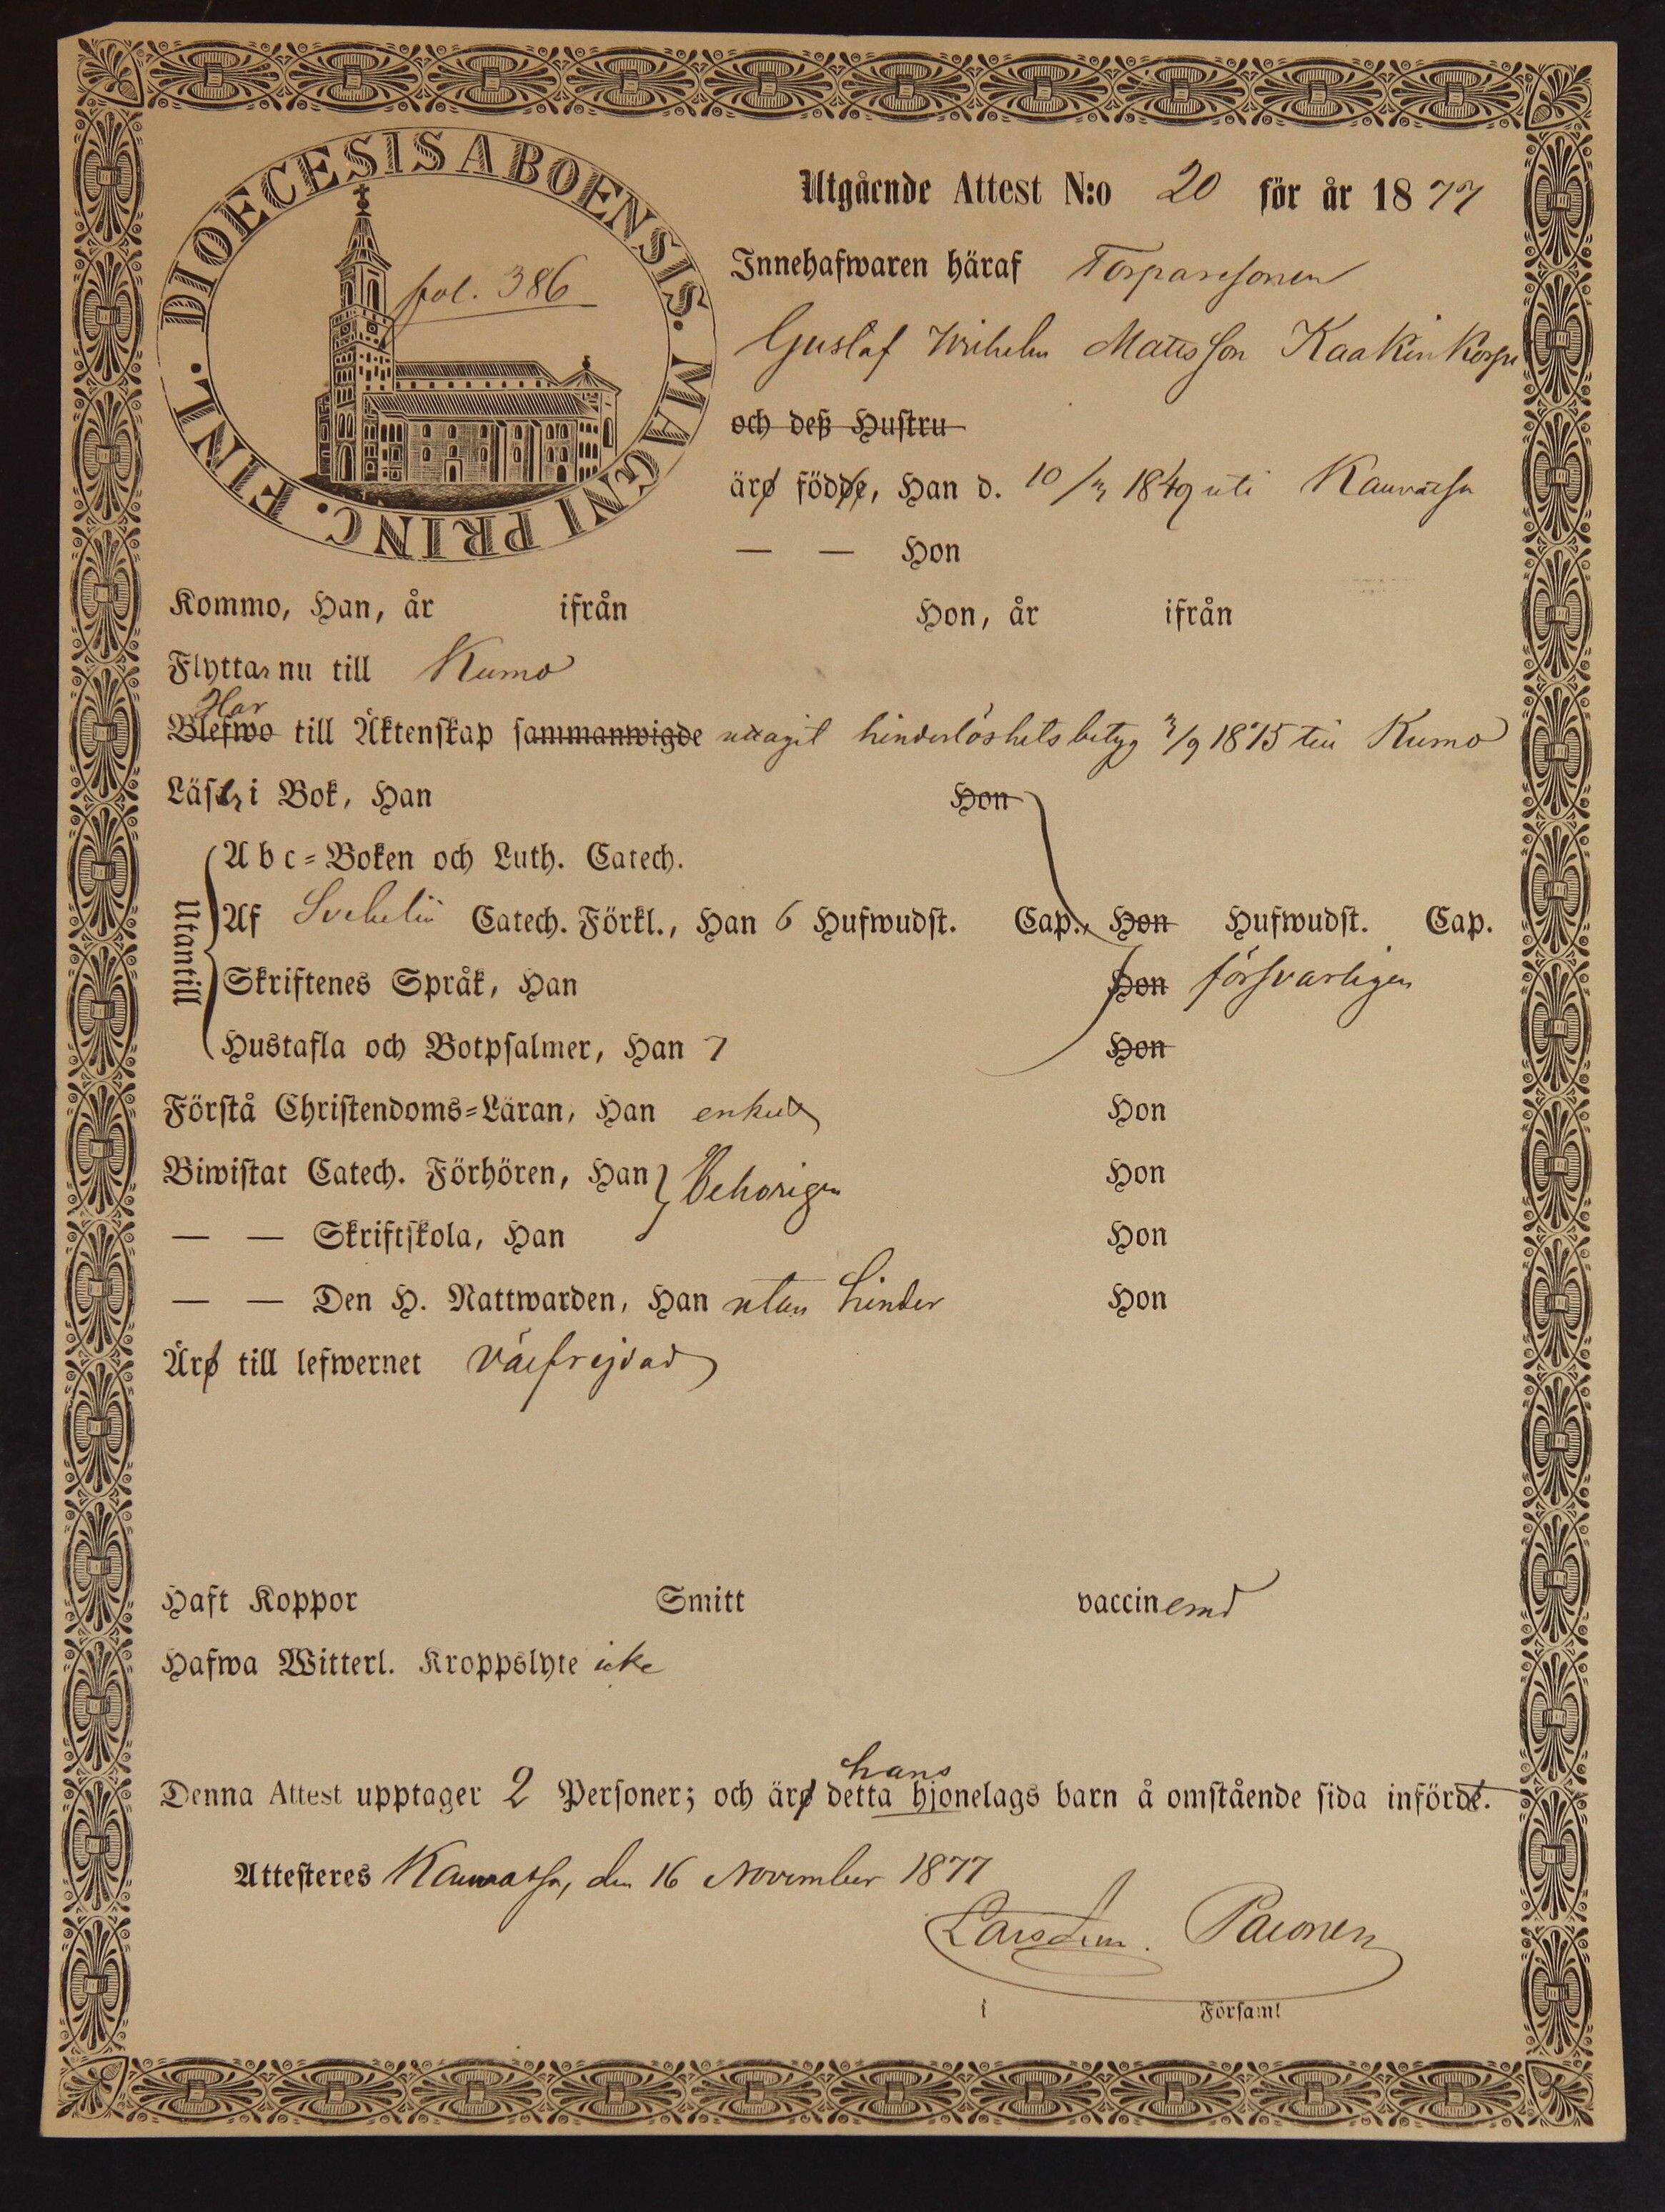 DIOECESIS ABOENSIS. MAGNI PRINC. FINL.
fol. 386
Utgående Attest N:o 20 för år 1877
Innehafwaren häraf Torparesonen
Gustaf Wilhelm Matts son Kaakinkorpi
och deß Hustru
äro födde, Han d. 10/ 1849 uti Kauvatsa
— — Hon
Kommo, Han, år ifrån Hon, år ifrån
Flyttar nu till Kumo
Har
Blefwo till Äktenskap sammanwigde uttagit hinderlöshets betyg /9 1875 till Kumo
Läser i Bok, Han Hon
Utantill
A b c-Boken och Luth. Catech.
Af Svebelii Catech. Förkl., Han 6 Hufwudst. Cap., Hon Hufwudst. Cap.
Skriftenes Språk, Han Hon försvarligen
Hustafla och Botpsalmer, Han 7 Hon
Förstå Christendoms-Läran, Han enkelt Hon
Biwistat Catech. Förhören, Han Behörigen Hon
— — Skriftskola, Han Hon
— — Den H. Nattwarden, Han utan hinder Hon
Äro till lefwernet välfrejdad
Haft Koppor Smitt vaccinerad
Hafwa Witterl. Kroppslyte icke
hans
Denna Attest upptager 2 Personer; och äro detta hjonelags barn å omstående sida infördt.
Attesteres Kauvatsa, den 16 November 1877
Pajonen
i Församl